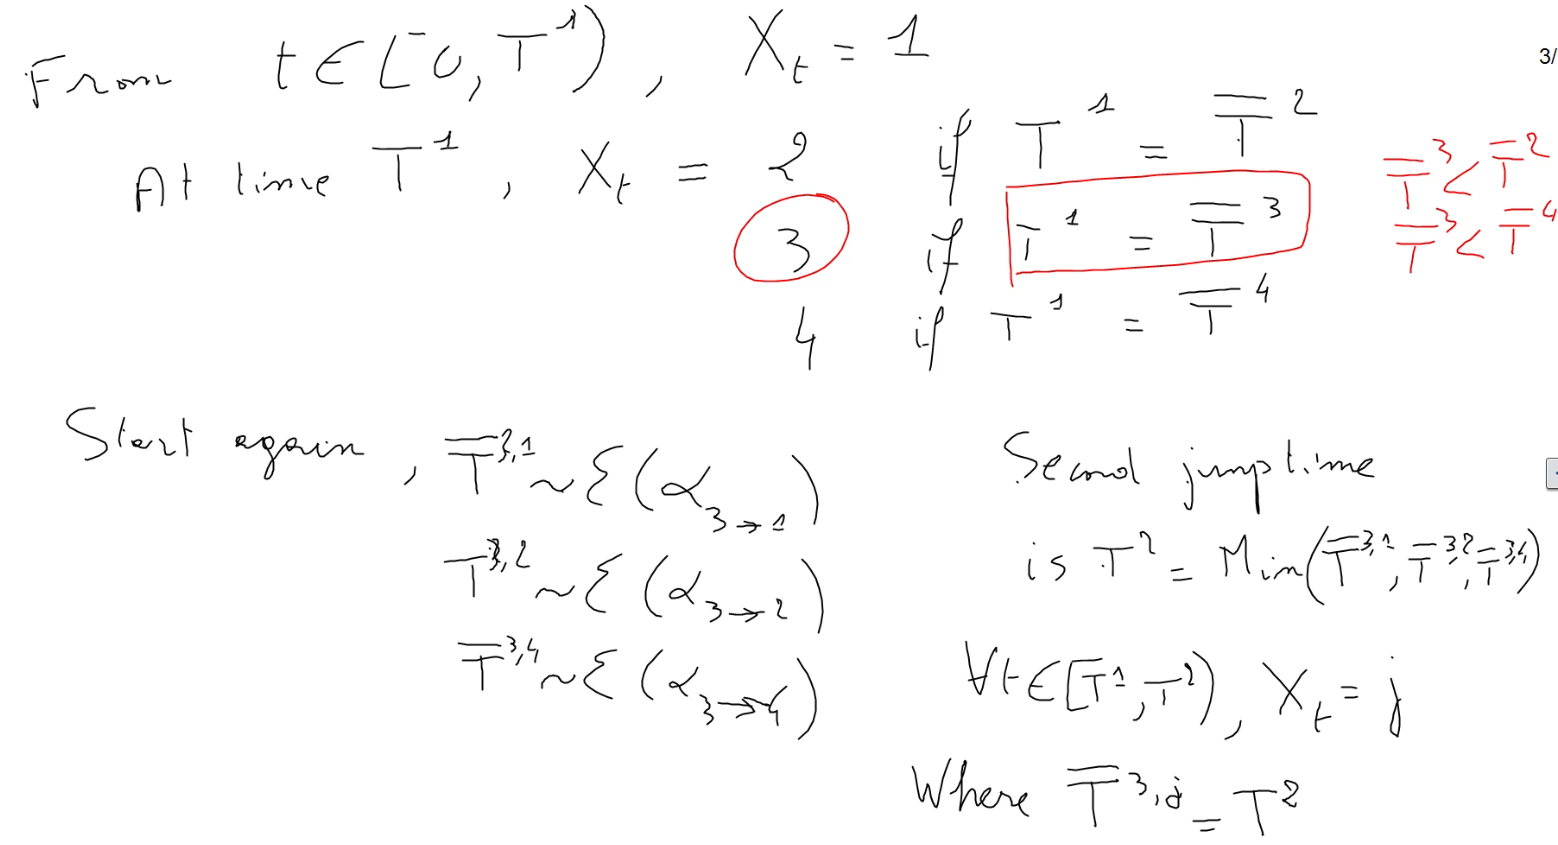 From t ∈ [0, T¹), X_t = 1
3/
At time T¹, X_t = 2 if T¹ = T̿²
3 if T̄¹ = T̿³
4 if T¹ = T̿⁴
T̿³ < T̿²
T̿³ < T̿⁴
Start again, T̿^{3,1} ~ ℰ(α_{3→1})
T̄^{3,2} ~ ℰ(α_{3→2})
T̿^{3,4} ~ ℰ(α_{3→4})
Second jump time
is T² = Min(T̿^{3,1}, T̿^{3,2}, T̿^{3,4})
∀t ∈ [T¹, T²), X_t = j
Where T̿^{3,j} = T²